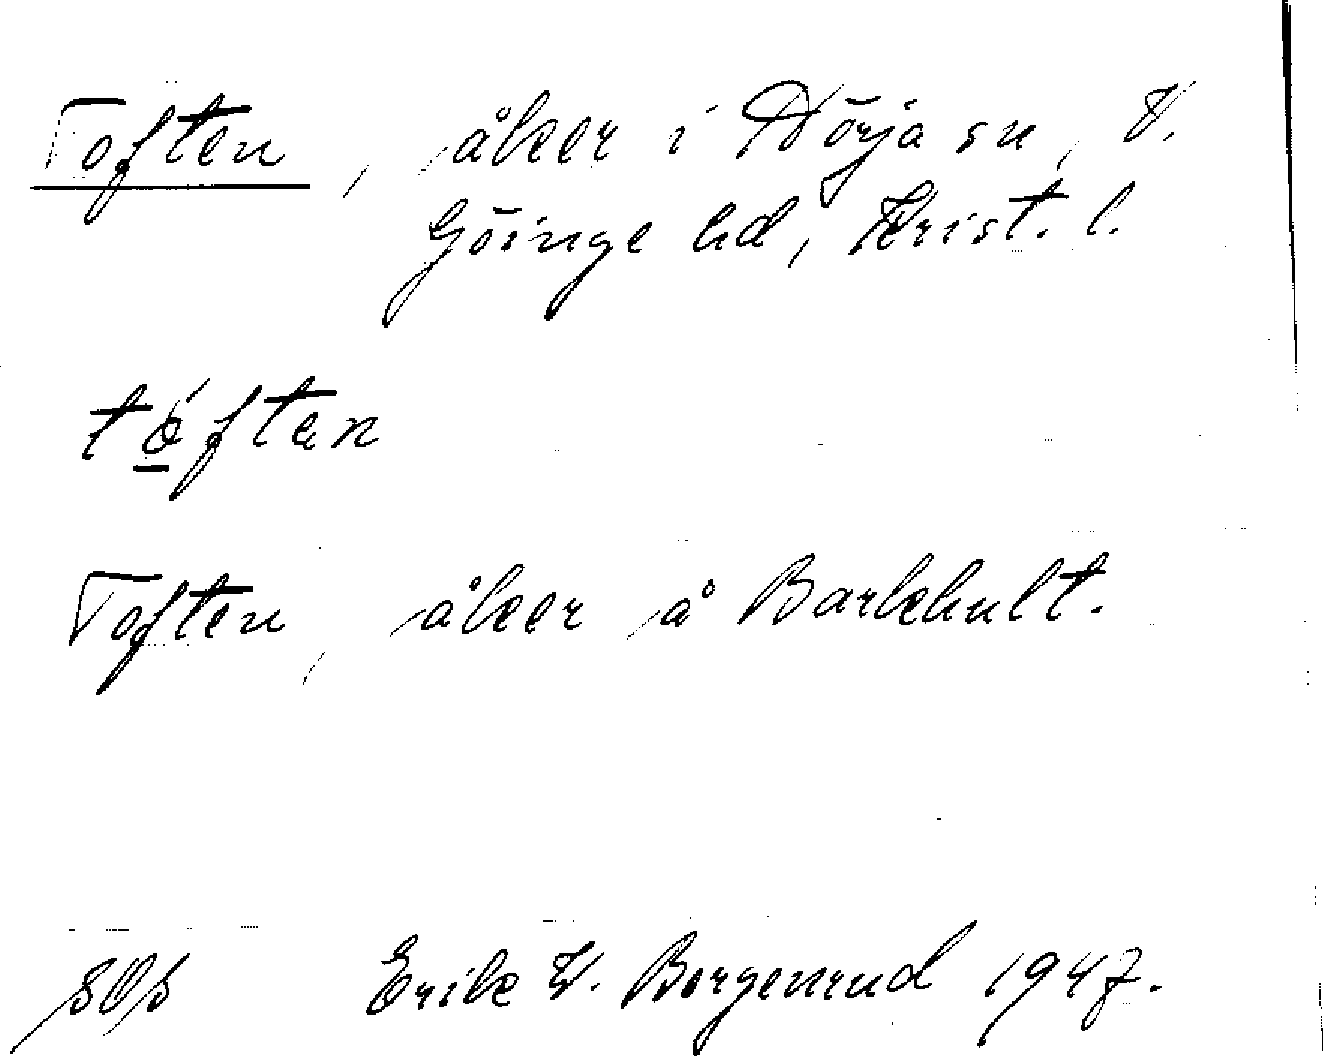 Toften, åker i Nörja sn, V.
Göinge hd, Krist. l.
tóftan
Toften, åker å Barkhult.
Erik W. Borgenrud 1947.